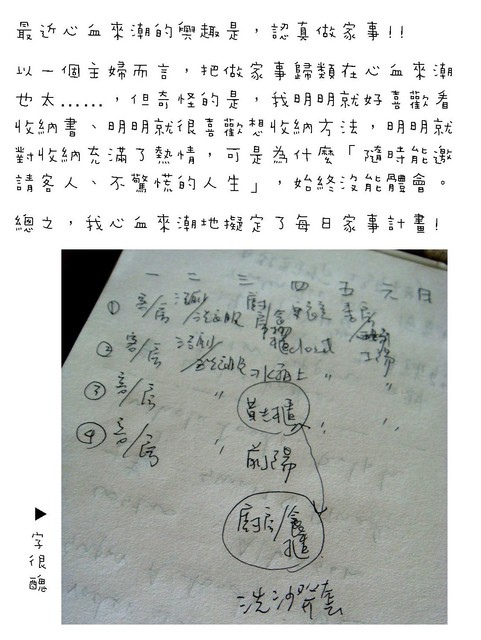 最近心血來潮的興趣是，認真做家事!!
以一個主婦而言，把做家事歸類在心血來潮
也太......，但奇怪的是，我明明就好喜歡看
收納書、明明就很喜歡想收納方法，明明就
對收納充滿了熱情，可是為什麼「隨時能邀
請客人、不驚慌的人生」，始終沒能體會。
總之，我心血來潮地擬定了每日家事計畫!
一 二 三 四 五 六 日
① 客/房 浴廁
② 客/房 浴廁
③ 客/房 〃
④ 客/房 〃
前陽
廚房/餐
櫃
洗沙發套
▶字很醜